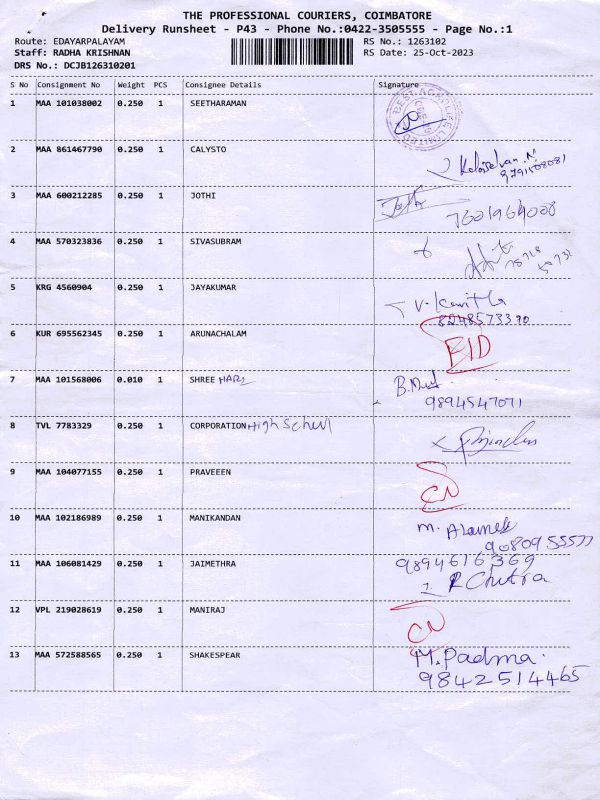 THE PROFESSIONAL COURIERS, COIMBATORE
Delivery Runsheet - P43 - Phone No.:0422-3505555 - Page No.:1
Route: EDAYARPALAYAM RS No.: 1263102
Staff: RADHA KRISHNAN RS Date: 25-Oct-2023
DRS No.: DCJB126310201
S No Consignment No Weight PCS Consignee Details Signature
1 MAA 101038002 0.250 1 SEETHARAMAN
2 MAA 861467790 0.250 1 CALYSTO
9791508081
3 MAA 600212285 0.250 1 JOTHI
7601964008
4 MAA 570323836 0.250 1 SIVASUBRAM
5 KRG 4560904 0.250 1 JAYAKUMAR
V. Kavitha
8248573370
6 KUR 695562345 0.250 1 ARUNACHALAM
7 MAA 101568006 0.010 1 SHREE HARI
9894547071
8 TVL 7783329 0.250 1 CORPORATION High School
9 MAA 104077155 0.250 1 PRAVEEEN
CN
10 MAA 102186989 0.250 1 MANIKANDAN
9080955577
11 MAA 106081429 0.250 1 JAIMETHRA 9894616369
R Chitra
12 VPL 219028619 0.250 1 MANIRAJ
CN
13 MAA 572588565 0.250 1 SHAKESPEAR M. Padma.
9842514465